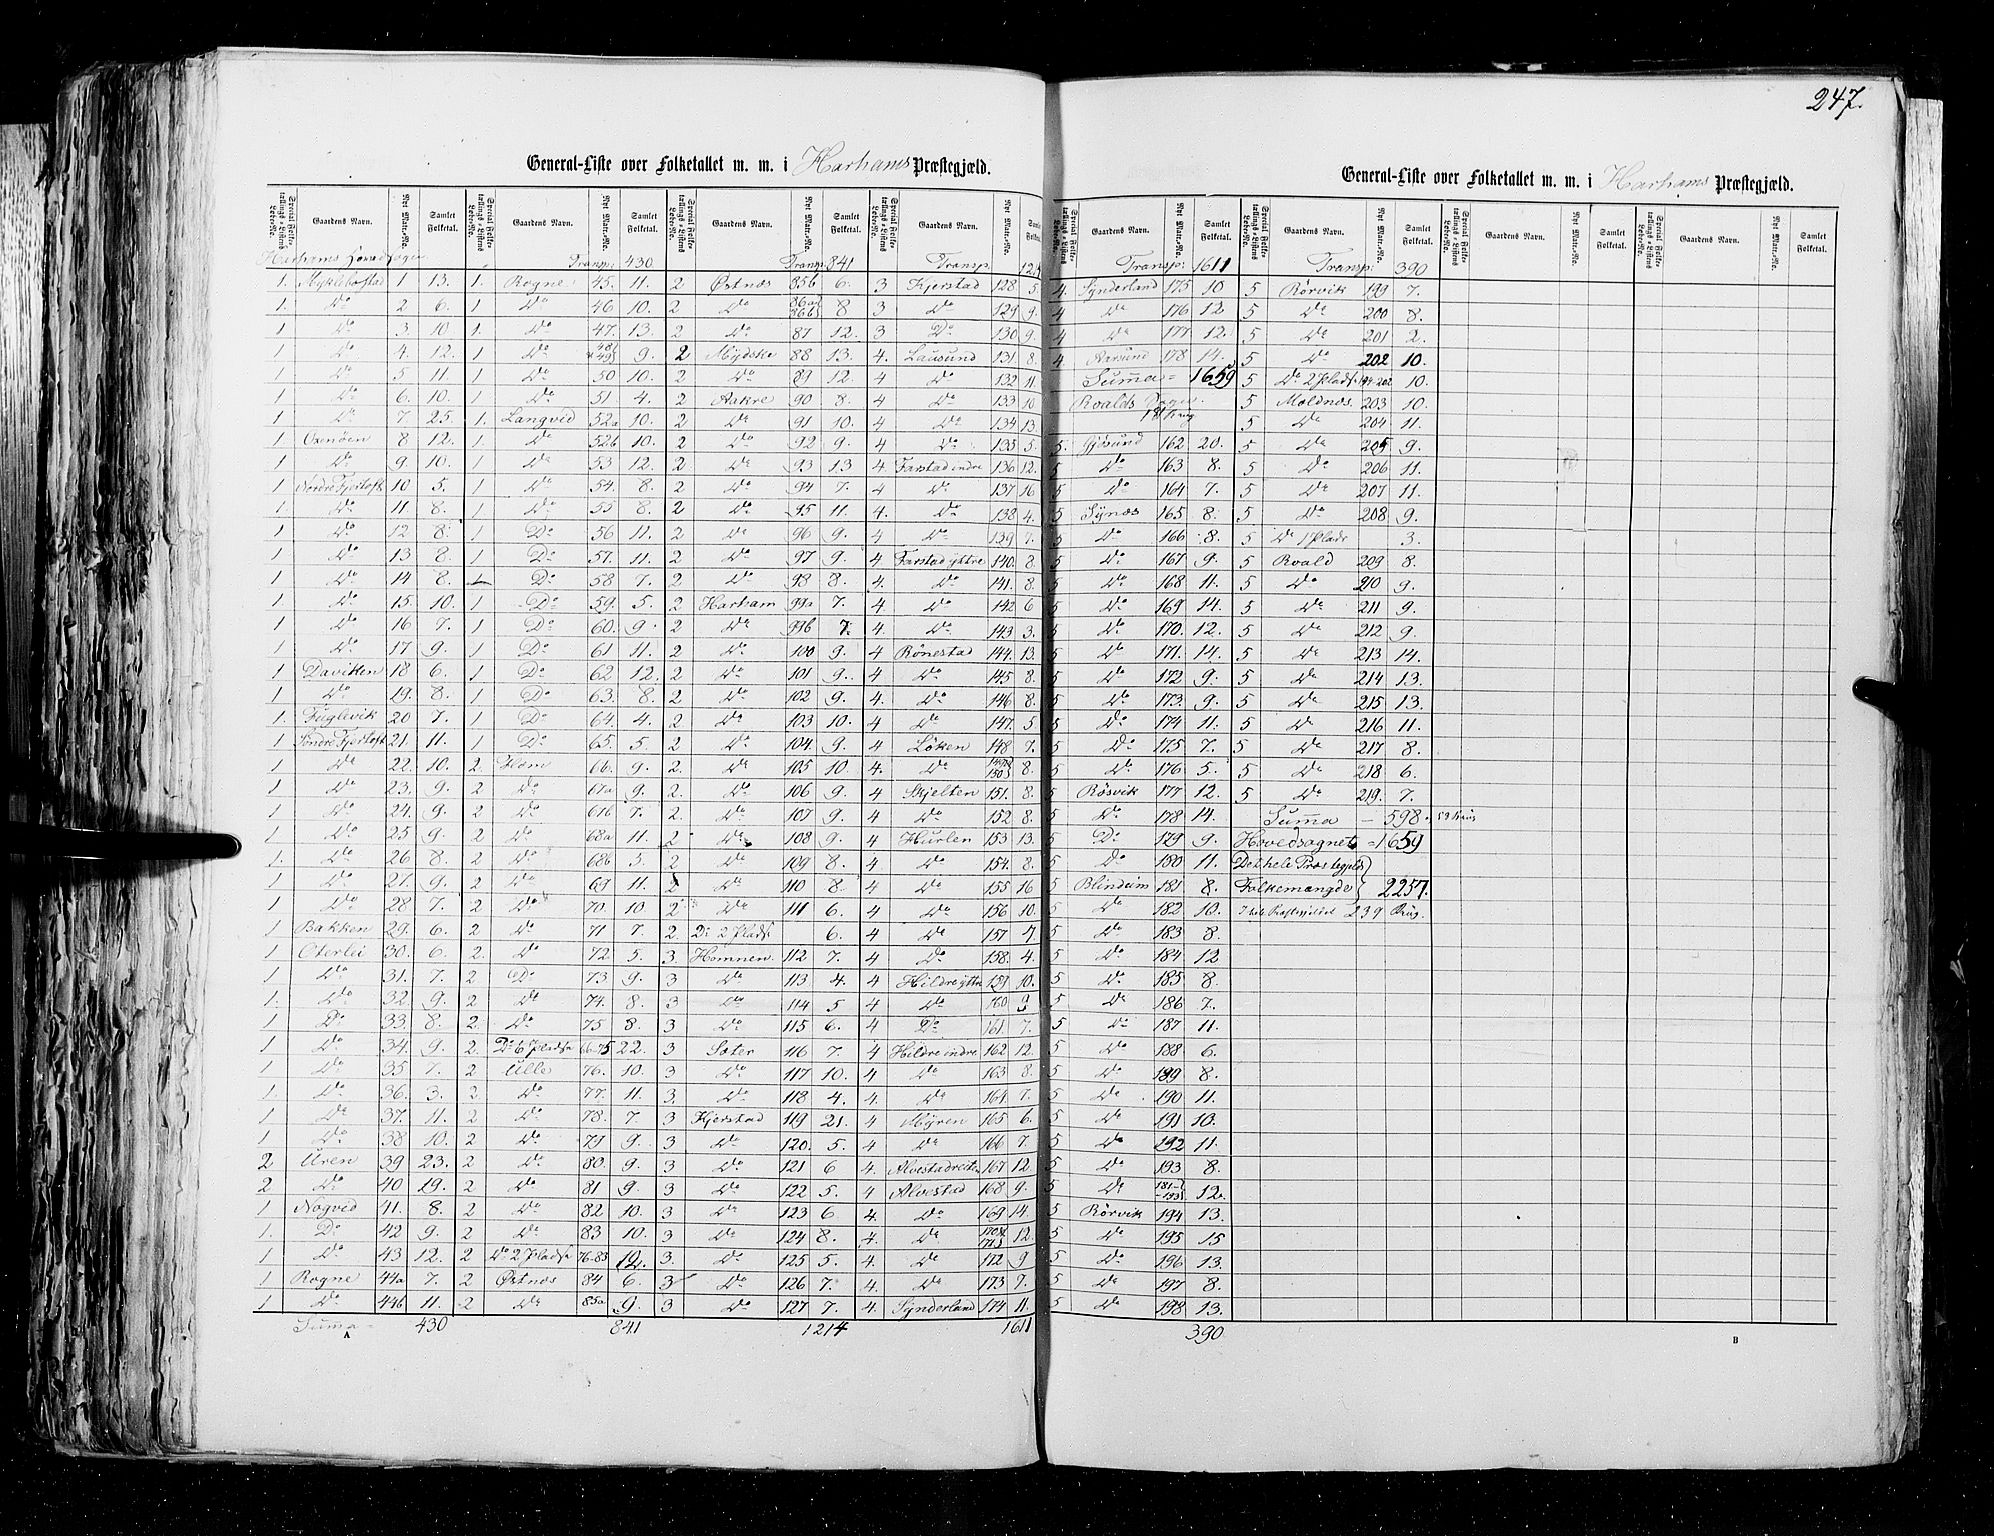 247.
General-Liste over Folketallet m. m. i Harhams Præstegjæld.
Gaardens Navn. Nyt Matr.-No. Samlet Folketal.
Harhams
Myklebostad 1 13.
1. Do 2 6.
1. Do 3 10.
1 Do 4. 12.
1 Do 5 11.
1 Do 6. 10.
1 Do 7 25.
1 Oxenöen 8 12.
1 Do 9. 10.
1 Nordre Fjertoft 10 5.
1 Do 11 8.
1 Do 12 8.
1 Do 13 8.
1 Do 14 8.
1 Do 15. 10.
1 Do 16 7.
1 Do 17 9.
1 Daviken 18 6.
1 Do 19. 8.
1. Fuglevik 20 7.
1 Søndre Fjertoft 21. 11.
1 Do 22. 10.
1 Do 23. 9.
1 Do 24. 9.
1 Do 25 9.
1. Do 26 8.
1 Do 27. 9.
1 Do 28. 7.
1 Bakken 29. 6.
1 Oterlei 30. 6.
1 Do 31. 7.
1. Do 32. 9.
1 Do 33. 8.
1 Do 34. 9.
1 Do 35 7.
1 Do 36. 3.
1 Do 37. 11.
1 Do 38 10.
2 Uren 39 23.
2 Do 40 19.
1 Nogvid 41. 8.
1. Do 42 9.
1 Do 43 12.
1 Rogne 44a 7.
1 Do 44b 11.
Suma = 430
A
Transp: 430
1. Rogne 45. 11.
1 Do 46 10.
1. Do 47. 13.
1 Do 48 49 9.
1 Do 50 10.
1 Do 51 4.
1. Langvid 52a 10.
1 Do 52b 10.
1 Do 53 12.
1 Do 54. 8.
1 Do 55 8.
1 Do 56 11.
1 Do 57. 11.
1 Do 58 7.
1 Do 59. 5.
1 Do 60. 9.
1 Do 61 11.
1 Do 62 12.
1 Do 63. 8.
1 Do 64. 4.
1 Do 65. 5.
2. Ham 66. 9.
2 Do 67a 9.
2 Do 67b 7.
2 Do 68a 11.
2 Do 68b 5.
2 Do 69 11.
2 Do 70. 10.
2 Do 71 7.
2. Do 72. 5.
2 Do 73 9.
2 Do 74. 8.
2. Do 75 8.
2. Do 6 Pladse 66-75 22.
2 Ulle 76. 10.
2 Do 77. 11.
2 Do 78. 7.
2 Do 79 9.
2 Do 80. 9.
2 Do 81 9.
2 Do 82 10.
2 Do 83 10.
2 Do 2 Pladse 76-83 12.
2 Østnæs 84 6.
2 Do 85a 9.
841
Transp: 841
2 Østnæs 85b 6.
2 Do 86a 86b 8
2 Do 87 12.
2 Mydske 88 13.
2 Do 89 12.
2 Aakre 90 8.
2 Do 91 10.
2 Do 92 9.
2. Do 93 13
2 Do 94 7.
2 Do 95 11.
2 Do 96 9.
2 Do 97 9.
2 Do 98 8.
2 Harham 99a 7.
2 Do 99b 7.
2 Do 100 9.
2 Do 101 9.
2 Do 102 9.
2 Do 103 10.
2 Do 104. 9.
2. Do 105 10.
2. Do 106 9.
2. Do 107 9.
2 Do 108 9.
2 Do 109 8.
2 Do 110 8.
2 Do 111 6.
2. Do 2 Pladse 6.
3. Homnen 112 7.
3 Do 113 4.
3 Do 114 5
3 Do 115 6.
3 Sæter 116 7.
3 Do 117 10.
3. Do 118 4.
3 Kjerstad 119 21.
3 Do 120. 5.
3 Do 121 6
3 Do 122 5.
3 Do 123 6
3 Do 124 8.
3. Do 125 5.
3 Do 126 7.
3 Do 127 7.
1214
Transp. 1214
3 Kjerstad 128 5.
3 Do 129 9.
3 Do 130 9.
4. Lausund 131 8.
4 Do 132 11.
4 Do 133 10
4 Do 134 13.
4 Do 135 5.
4 Farstad indre 136 12.
4 Do 137 16
4. Do 138 4.
4 Do 139 7.
4 Farstad yttre 140. 8.
4. Do 141. 8.
4. Do 142 6
4. Do 143 3.
4 Rönestad 144. 13.
4 Do 145 8.
4. Do 146 8.
4 Do 147. 5
4 Löken 148 7.
4. Do 149 150 8.
4 Skjelten 151. 8.
4 Do 152 8.
4 Hurlen 153 13.
4 Do 154. 8.
4 Do 155 16
4 Do 156 10.
4 Do 157 7
4 Do 158. 4.
4 Hildre yttre 159 10.
4 Do 160 9
4 Do 161. 7.
4 Hildre indre 162 12.
4 Do 163 8.
4. Do 164 7.
4 Myren 165 6.
4 Do 166 7.
4. Alvestadreiten 167 12.
4 Alvestad 168 9.
4. Do 169 14.
4. Do 170 171 12.
4. Do 172 9
4. Do 173 7.
4. Synderland 174 11.
1611
General-Liste over Folketallet m. m. i Harhams Præstegjæld.
Transp: 1611
4. Synderland 175 10
4 Do 176 12
4 Do 177 12.
4 Aarsund 178 14.
Summa = 1659
Roalds Sogn.
5. Gjøsund 162 20.
5 Do 163 8.
5 Do 164 7.
5 Synæs 165 8.
5 Do 166 8.
5 Do 167 9.
5 Do 168 11.
5 Do 169 14.
5 Do 170. 12.
5 Do 171. 14.
5 Do 172 9.
5 Do 173. 9.
5 Do 174 11.
5 Do 175 7.
5 Do 176 5.
5 Røsvik 177 12.
5 Do 178 14.
5 Do 179 9.
5 Do 180 11.
5 Blindeim 181 8.
5 Do 182 10.
5 Do 183 8.
5 Do 184 12
5 Do 185 8.
5 Do 186 7.
5 Do 187 11.
5 Do 188 6.
5 Do 189 8.
5 Do 190 11.
5 Do 191 10.
5 Do 192 11.
5 Do 193 8.
5 Do 181-193 12.
5 Rørvik 194 13.
5 Do 195 15
5 Do 196 13.
5 Do 197 8.
5 Do 198 13.
390
Transp: 390
5 Rørvik 199 7.
5 Do 200 8.
5 Do 201 2.
5 Do 202 10.
5 Do 2 Pladse 194-202 10.
5 Moldnæs 203 10.
5 Do 204 11.
5 Do 205 9.
5 Do 206 11.
5 Do 207 11.
5 Do 208 9.
5 Do 1 Plads 3.
5 Roald 209 8.
5 Do 210 9.
5 Do 211 9.
5 Do 212 9.
5 Do 213 14.
5 Do 214 13.
5 Do 215 13.
5 Do 216 11.
5 Do 217 8.
5 Do 218 6.
5 Do 219. 7.
Summa - 598.
Hovedsognet = 1659
Det hele Præstegjelds
Folkemængde 2257.
239
B